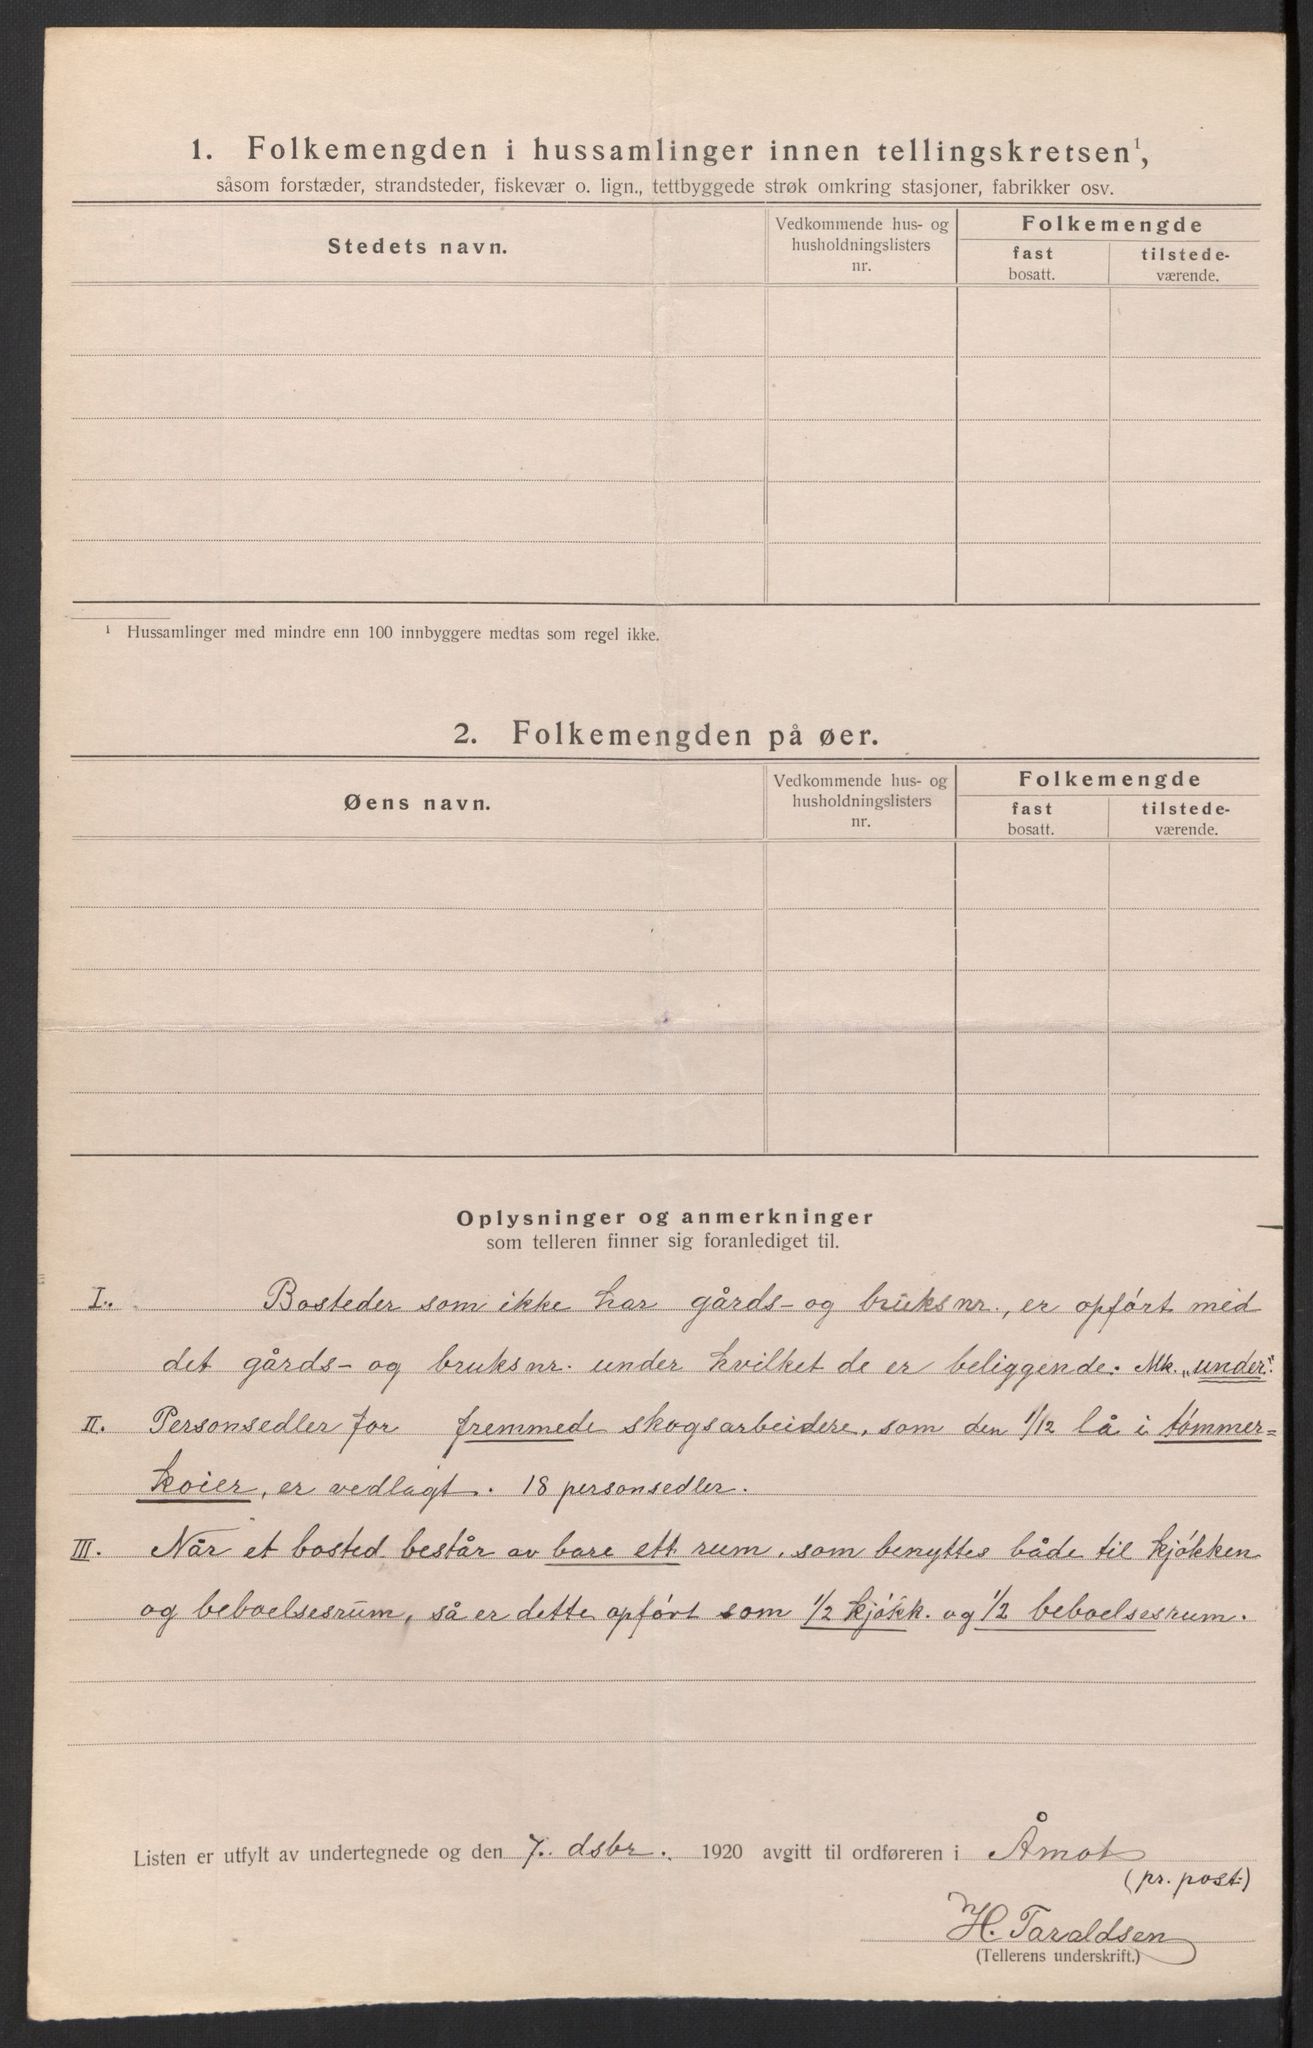 1. Folkemengden i hussamlinger innen tellingskretsen¹,
såsom forstæder, strandsteder, fiskevær o. lign., tettbyggede strøk omkring stasjoner, fabrikker osv.
Stedets navn.
Vedkommende hus- og
husholdningslisters
nr.
Folkemengde
fast
bosatt.
tilstede-
værende.
¹ Hussamlinger med mindre enn 100 innbyggere medtas som regel ikke.
2. Folkemengden på øer.
Øens navn.
Vedkommende hus- og
husholdningslisters
nr.
Folkemengde
fast
bosatt.
tilstede-
værende.
Oplysninger og anmerkninger
som telleren finner sig foranlediget til.
I. Bosteder som ikke har gårds- og bruksnr., er opført med
det gårds- og bruksnr. under hvilket de er beliggende. Mk. „under".
II. Personsedler for fremmede skogsarbeidere, som den 1/12 lå i tømmer=
koier, er vedlagt. 18 personsedler.
III. Når et bosted består av bare ett rum, som benyttes både til kjøkken
og beboelsesrum, så er dette opført som 1/2 kjøkk. og 1/2 beboelsesrum.
Listen er utfylt av undertegnede og den 7. dsbr. 1920 avgitt til ordføreren i Åmot
(pr. post.)
H. Taraldsen
(Tellerens underskrift.)